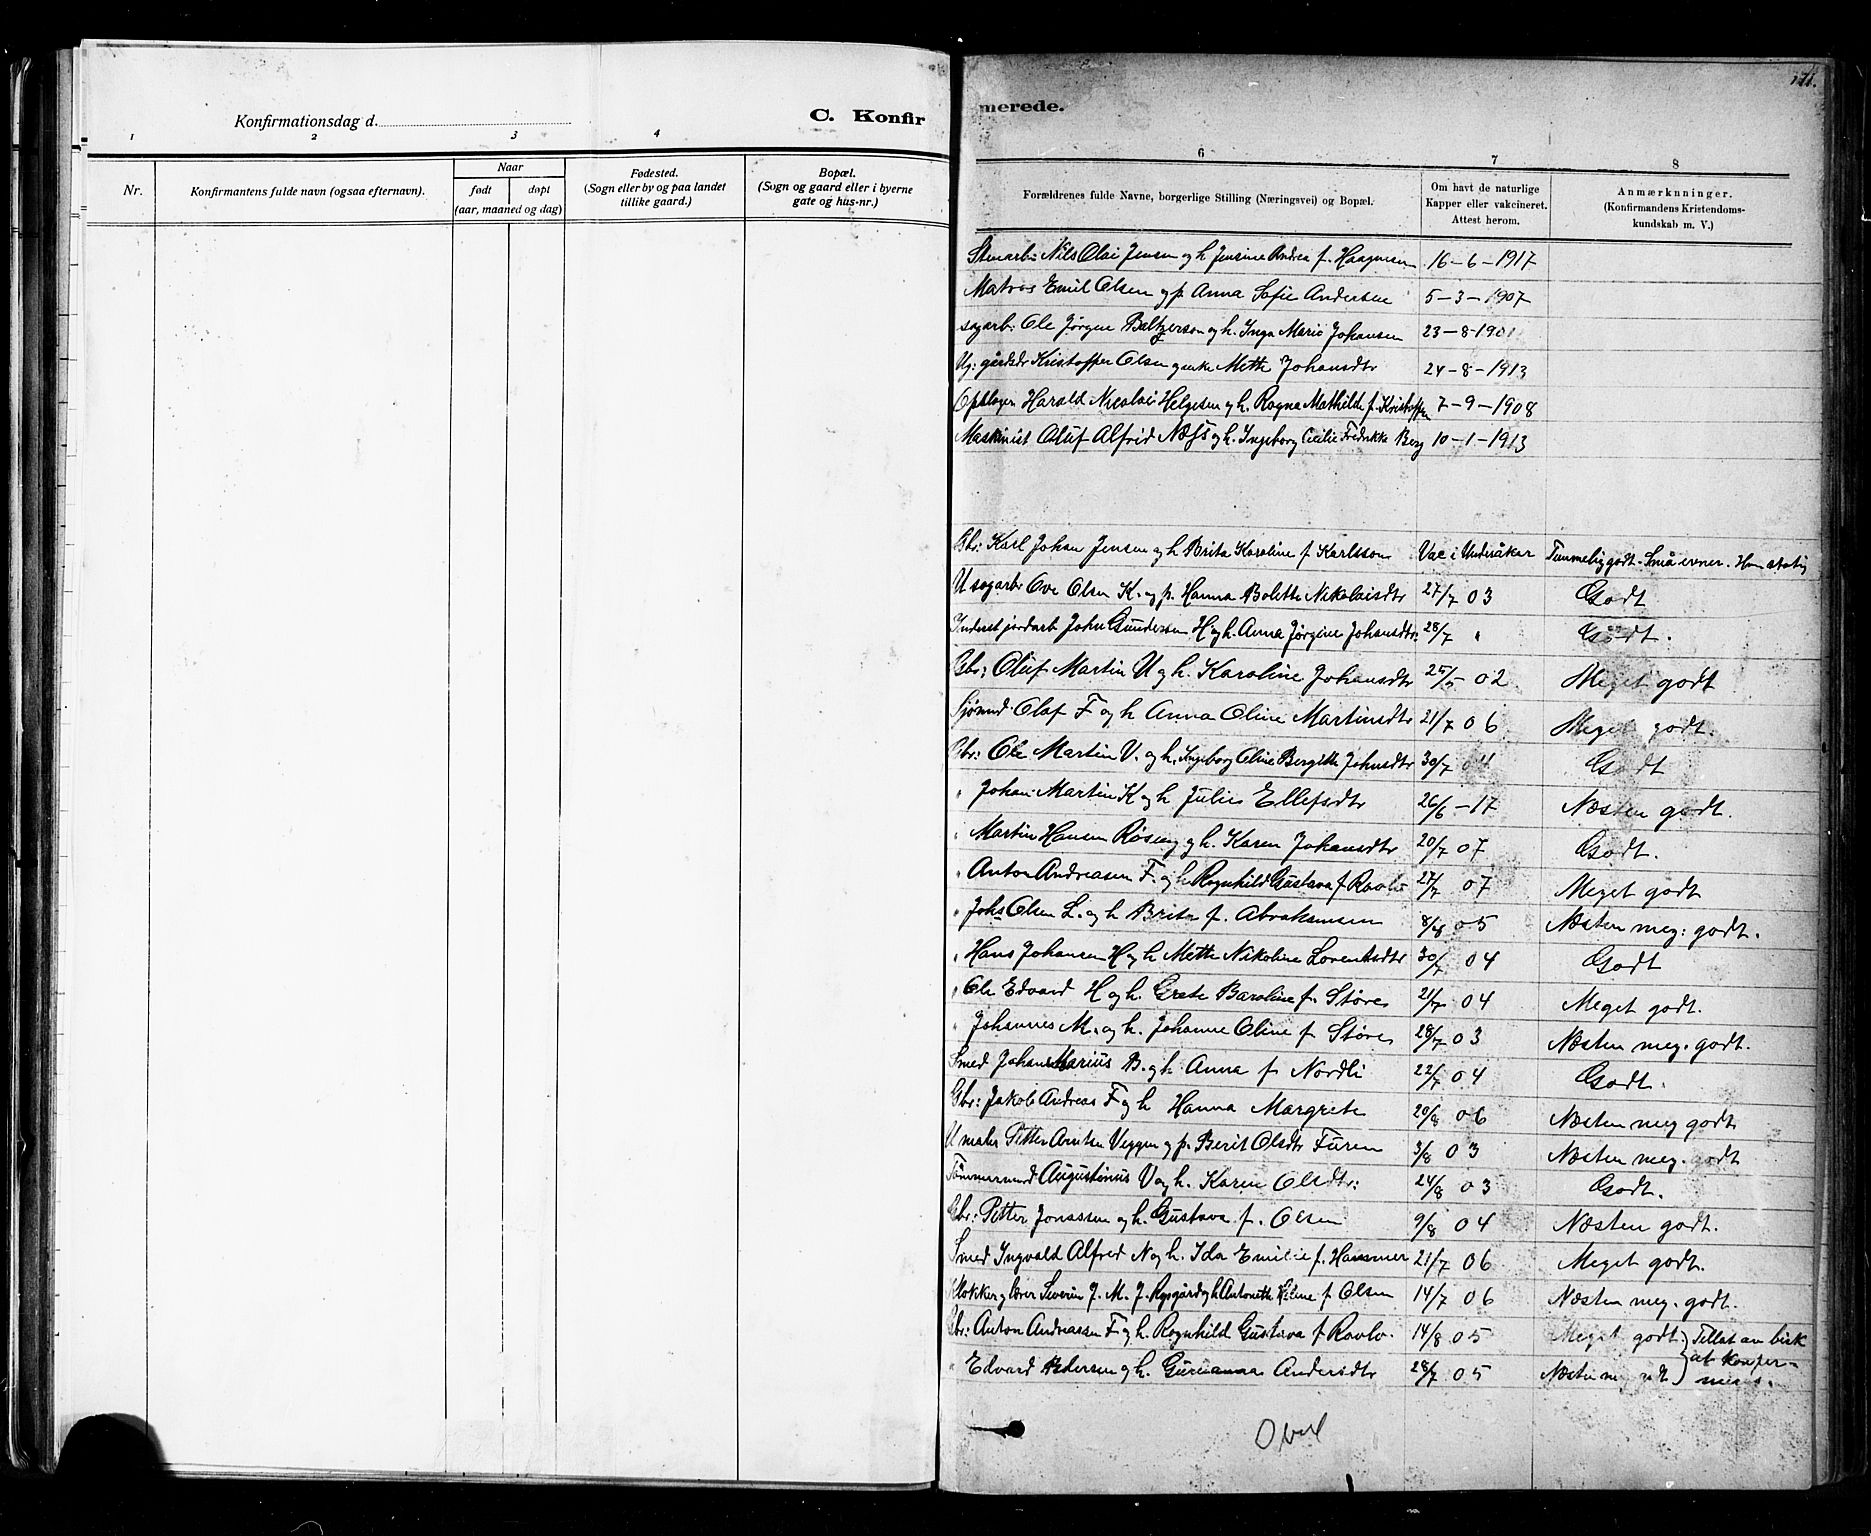 Konfirmationsdag d.
C. Konfir
1 2 3 4
Nr.
Konfirmantens fulde navn (ogsaa efternavn).
Naar
født
døpt
(aar, maaned og dag)
Fødested.
(Sogn eller by og paa landet
tillike gaard.)
Bopæl.
(Sogn og gaard eller i byerne
gate og hus-nr.)
171.
merede.
6 7 8
Forældrenes fulde Navne, borgerlige Stilling (Næringsvei) og Bopæl.
Om havt de naturlige
Kapper eller vakcineret.
Attest herom.
Anmærknninger.
(Konfirmandens Kristendoms-
kundskab m. V.)
Stenarb: Nils Olai Jensen og h. Jensine Andrea f. Haagensen 16-6-1917
Matros Emil Olsen og p. Anna Sofie Andersen 5-3-1907
sagarb: Ole Jørgen Baltzersen og h. Inga Marie Johansen 23-8-1901
Ug: gårdsdr Kristoffer Olsen og enke Mette Johansdtr 24-8-1913
Opsloger Harald Nicolai Helgesen og h. Ragna Mathilde f. Kristoffen 7-9-1908
Maskinist Oluf Alfred Næss og h. Ingeborg Cecilie Fredrikke Berg 10-1-1913
Gbr: Karl Johan Jensen og h Brita Karoline f Karlsson Vac i Undersåker Temmelig godt. Små evner.
U sagarb Ove Olsen K. og p. Hanna Bolette Nikolaisdtr 27/7 03 Godt
Inderst jordarb John Gundersen H og h. Anna Jørgine Johansdtr. 28/7 " Godt.
Gbr: Oluf Martin U og h. Karoline Johansdtr 25/5 02 Meget godt
Sjømd. Olaf F og h Anna Oline Martinsdtr 21/7 06 Meget godt.
Gbr: Ole Martin V. og h. Ingeborg Oline Bergitte Johnsdtr 30/7 04 Godt
" Johan Martin K og h Julie Ellefsdtr 26/6-17 Næsten godt.
" Martin Hansen Røseng og h. Karen Johansdtr 20/7 07 Godt.
" Anton Andreasen F. og h Ragnhild Gustava f Ravlo 27/7 07 Meget godt
" Johs Olsen L. og h Brita f. Abrahamsen 8/8 05 Næsten meg: godt.
" Hans Johansen H og h Mette Nikoline Lorentsdtr 30/7 04 Godt
" Ole Edvard H og h. Grete Baroline f. Støre 21/7 04 Meget godt.
" Johannes M. og h. Johanne Oline f Støre 28/7 03 Næsten meg. godt.
Smed Johan Marius B. og h Anna f Nordli 22/7 04 Godt.
Gbr: Jakob Andreas F og h Hanna Margrete 20/8 06 Næsten meg godt
U maler Petter Arntsen Veggen og p. Berit Olsdtr Furen 3/8 03 Næsten meg. godt
Tømmermand Augustinus V og h. Karen Olsdtr: 24/8 03 Godt.
Gbr: Petter Jonassen og h. Gustava f. Olsen 9/8 04 Næsten godt.
Smed Ingvald Alfred N og h. Ida Emilie f. Hammer 21/7 06 Meget godt.
Klokker og lærer Severin J. M. J. Rygård og h Antonette Heline f Olsen 14/7 06 Næsten meg. godt.
Gbr: Anton Andreassen F og h. Ragnhild Gustava f Ravlo. 14/8 05 Meget godt } Tillat av bisk
" Edvard Pedersen og h. Gurianna Andersdtr 28/7 05 Næsten meg godt } at konfir-
meres.